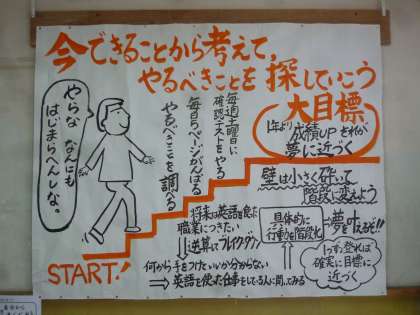 今できることから考えて、
やるべきことを探していこう
大目標
1年より成績UPそれが
夢に近づく
やらな なんにも
はじまらへんしな。
毎週土曜日に
確認テストをやる
毎日5ページがんばる
やるべきことを調べる
壁は小さく砕いて
階段に変えよう
将来は英語を使う
職業につきたい
逆算してブレイクダウン
具体的に
行動を階段化
夢を叶えるぞ!!
1つずつ登れば
確実に目標に
近づく
START!
何から手をつけていいか分からない
英語を使った仕事をしている人に聞いてみる